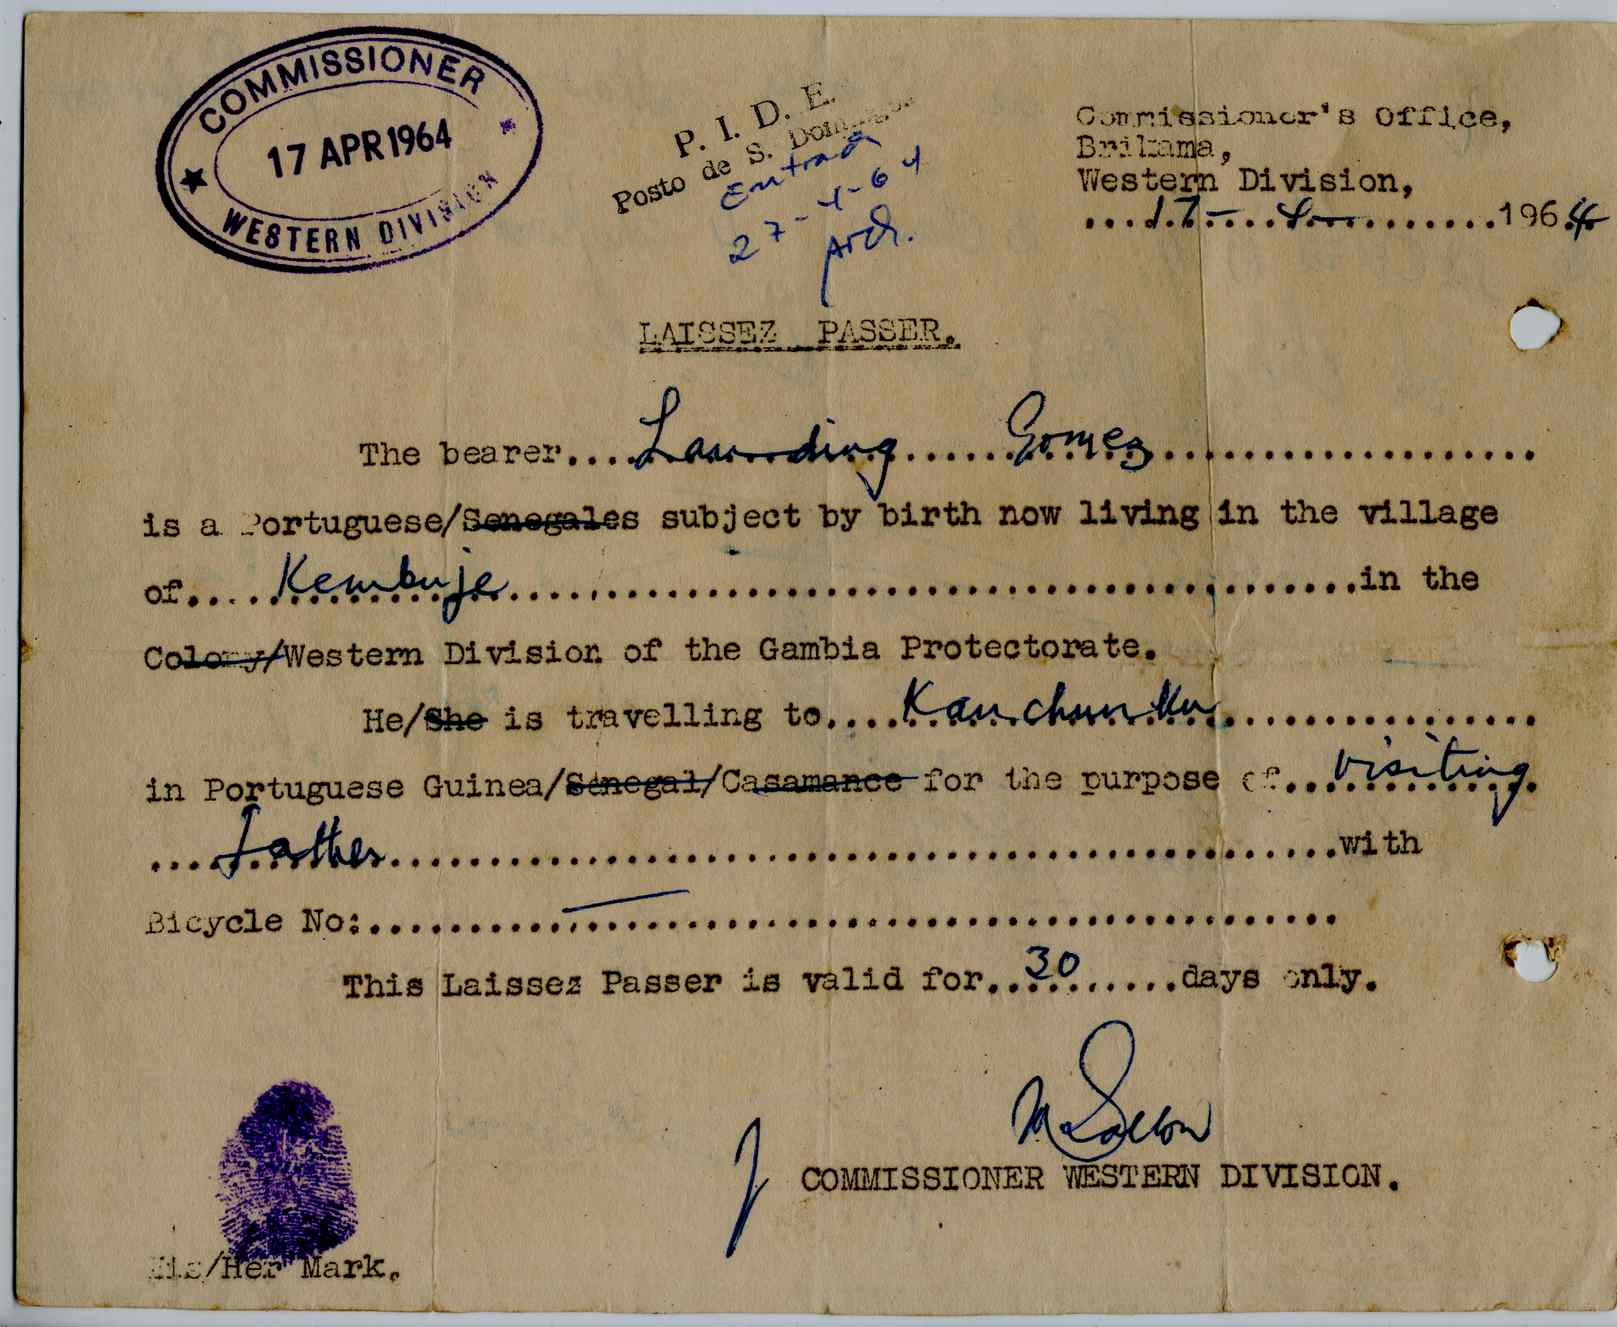 COMMISSIONER
17 APR 1964
WESTERN DIVISION
P. I. D. E.
Posto de S. Domingos
Entrada
27-4-64
Commissioner's Office,
Brikama,
Western Division,
....17-....4-..........1964
LAISSEZ PASSER.
The bearer....Lamding......Gomez...................
is a Portuguese/Senegales subject by birth now living in the village
of....Kembuje...........................................in the
Colony/Western Division of the Gambia Protectorate.
He/She is travelling to....Kanchunku................
in Portuguese Guinea/Senegal/Casamance for the purpose of..visiting
....father................................................with
Bicycle No:..................................................
This Laissez Passer is valid for..30........days only.
COMMISSIONER WESTERN DIVISION.
His/Her Mark.